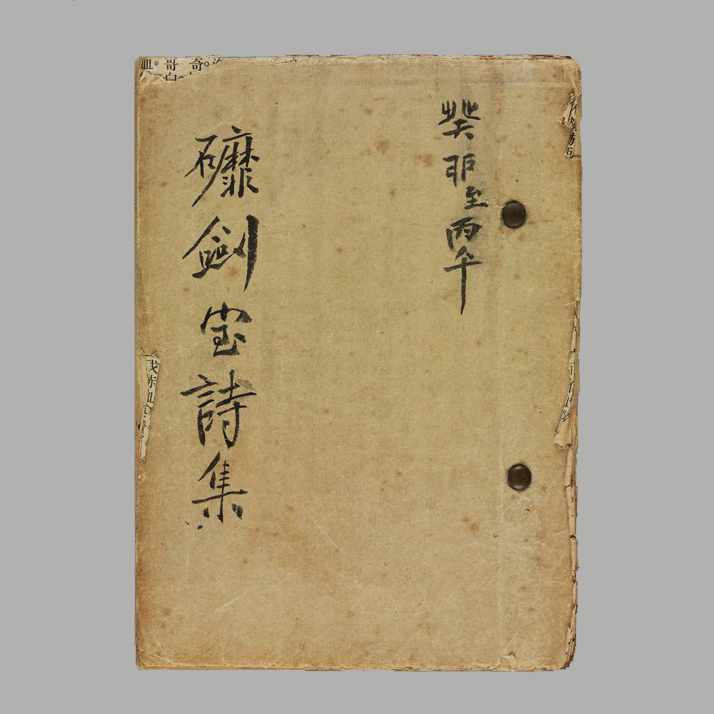 癸卯至丙午
䃺劍室詩集